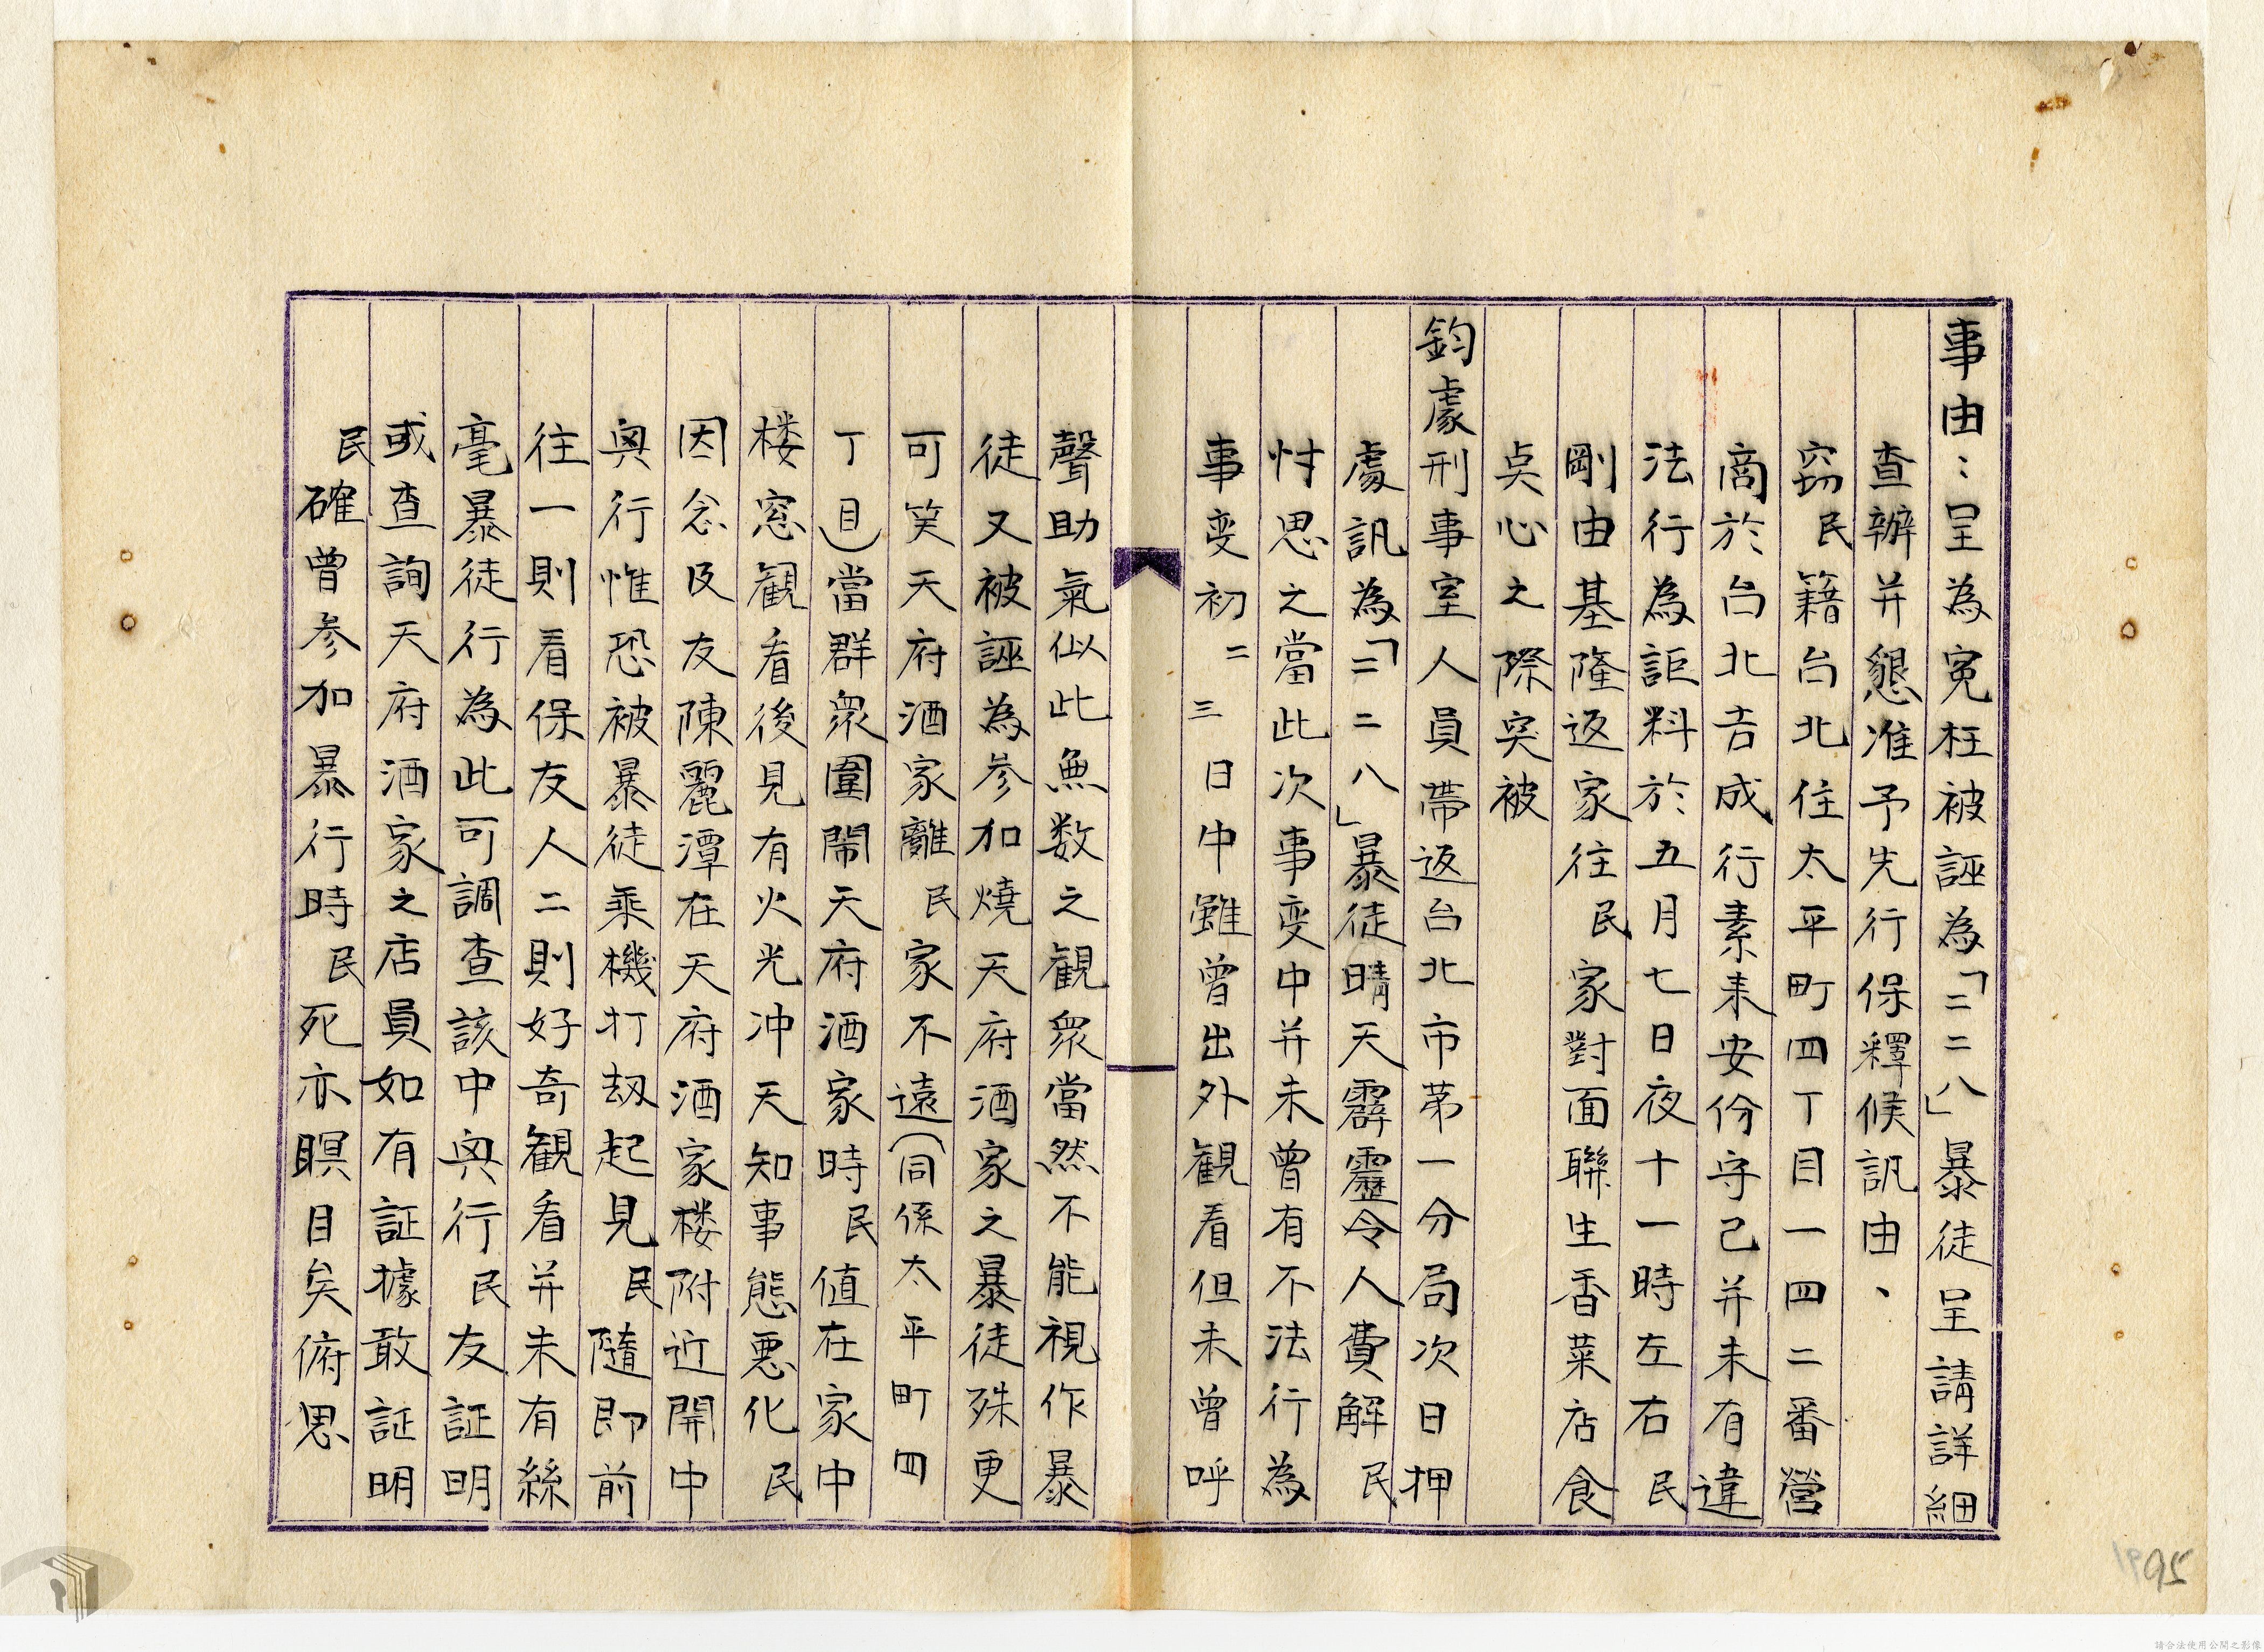 事由：呈為冤枉被誣為「二二八」暴徒呈請詳細
查辦并懇准予先行保釋候訊由、
竊民籍台北住太平町四丁目一四二番營
商於台北吉成行素来安份守己并未有違
法行為詎料於五月七日夜十一時左右民
剛由基隆返家往民家對面聯生香菜店食
点心之際突被
鈞處刑事室人員帶返台北市苐一分局次日押
處訊為「二二八」暴徒晴天霹靂令人費解民
忖思之當此次事变中并未曾有不法行為
事变初二三日中雖曾出外観看但未曾呼
聲助氣似此無数之観眾當然不能視作暴
徒又被誣為参加燒天府酒家之暴徒殊更
可笑天府酒家離民家不遠（同係太平町四
丁目）當群眾圍鬧天府酒家時民值在家中
楼窓観看後見有火光冲天知事態悪化民
因念及友陳麗潭在天府酒家楼附近開中
與行惟恐被暴徒乘機打刼起見民隨即前
往一則看保友人二則好奇観看并未有絲
毫暴徒行為此可調查該中與行民友証明
或查詢天府酒家之店員如有証據敢証明
民確曾参加暴行時民死亦瞑目矣俯思
95
請合法使用公開之影像